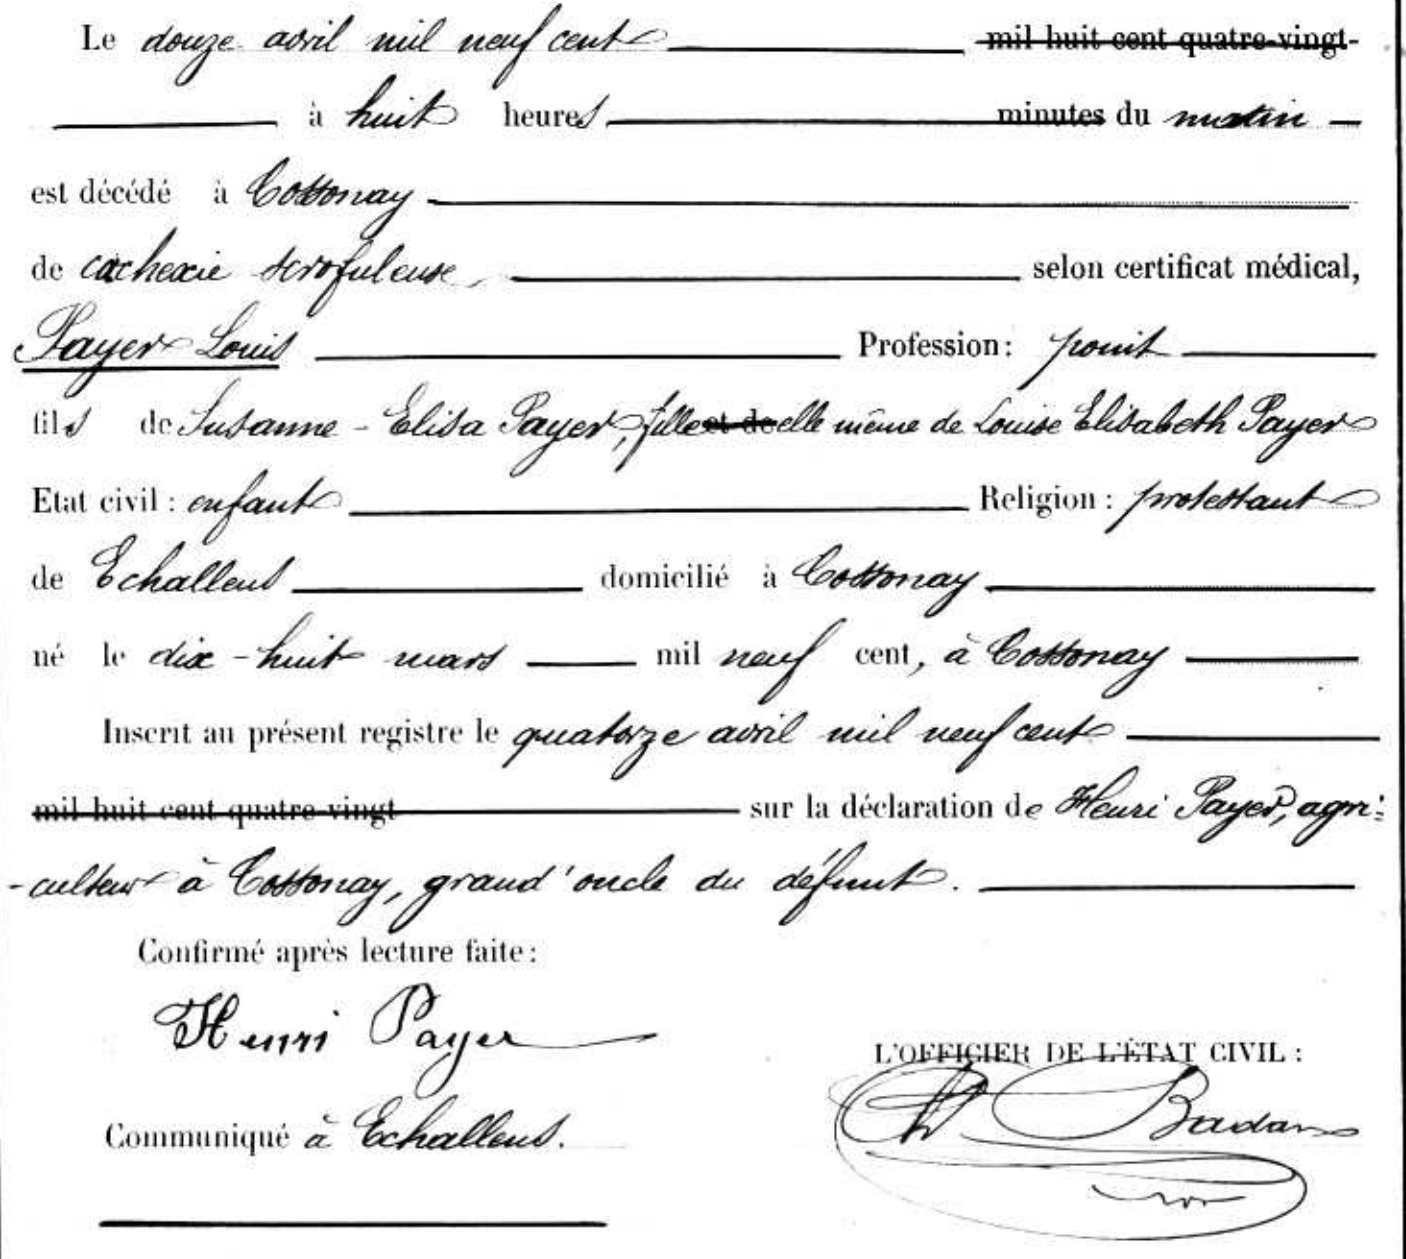 Le douze avril mil neuf cent mil huit cent quatre-vingt-
à huit heures minutes du matin
est décédé à Cossonay
de cachexie scrofuleuse selon certificat médical,
Payer Louis Profession: point
fils de Susanne-Elisa Payer, fille et de elle même de Louise Elisabeth Payer
Etat civil: enfant Religion: protestant
de Echallens domicilié à Cossonay
né le dix-huit mars mil neuf cent, à Cossonay
Inscrit au présent registre le quatorze avril mil neuf cent
mil huit cent quatre-vingt sur la déclaration de Henri Payer, agri-
-culteur à Cossonay, grand'oncle du défunt.
Confirmé après lecture faite:
Henri Payer
L'OFFICIER DE L'ÉTAT CIVIL:
Communiqué à Echallens.